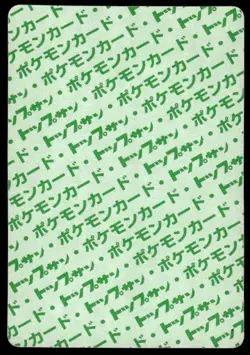 トップサン・ポケモンカード
ポケモンカード・トップサン
トップサン・ポケモンカード
ポケモンカード・トップサン
トップサン・ポケモンカード
ポケモンカード・トップサン
トップサン・ポケモンカード
ポケモンカード・トップサン
トップサン・ポケモンカード
ポケモンカード・トップサン
トップサン・ポケモンカード
ポケモンカード・トップサン